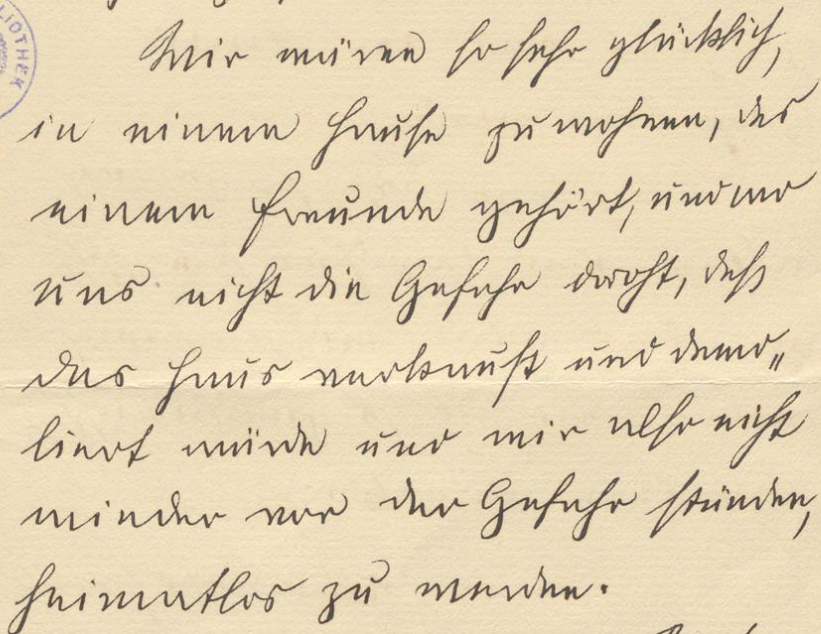 BLIOTHEK
Wir wären so sehr glücklich,
in einem Hause zu wohnen, das
einem Freunde gehört, und wo
uns nicht die Gefahr droht, daß
das Haus verkauft und demo„
liert würde und wir also nicht
minder vor der Gefahr stünden,
heimatlos zu werden.